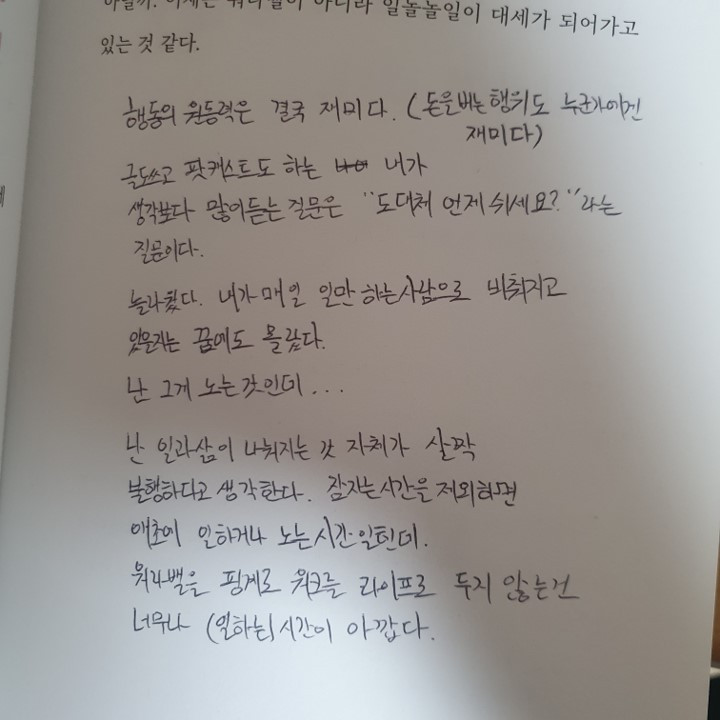 아니라 일놀놀일이 대세가 되어가고
있는 것 같다.
행동의 원동력은 결국 재미다. (돈을버는 행위도 누군가에겐
재미다)
글도쓰고 팟캐스트도 하는 내가
생각보다 많이듣는 질문은 "도대체 언제 쉬세요?"라는
질문이다.
놀라웠다. 내가 매일 일만 하는사람으로 비춰지고
있을지는 꿈에도 몰랐다.
난 그게 노는것인데...
난 일과삶이 나눠지는 것 자체가 살짝
불행하다고 생각한다. 잠자는시간을 제외하면
애초에 일하거나 노는시간일텐데.
워라밸을 핑계로 워크를 라이프로 두지 않는건
너무나 (일하는) 시간이 아깝다.